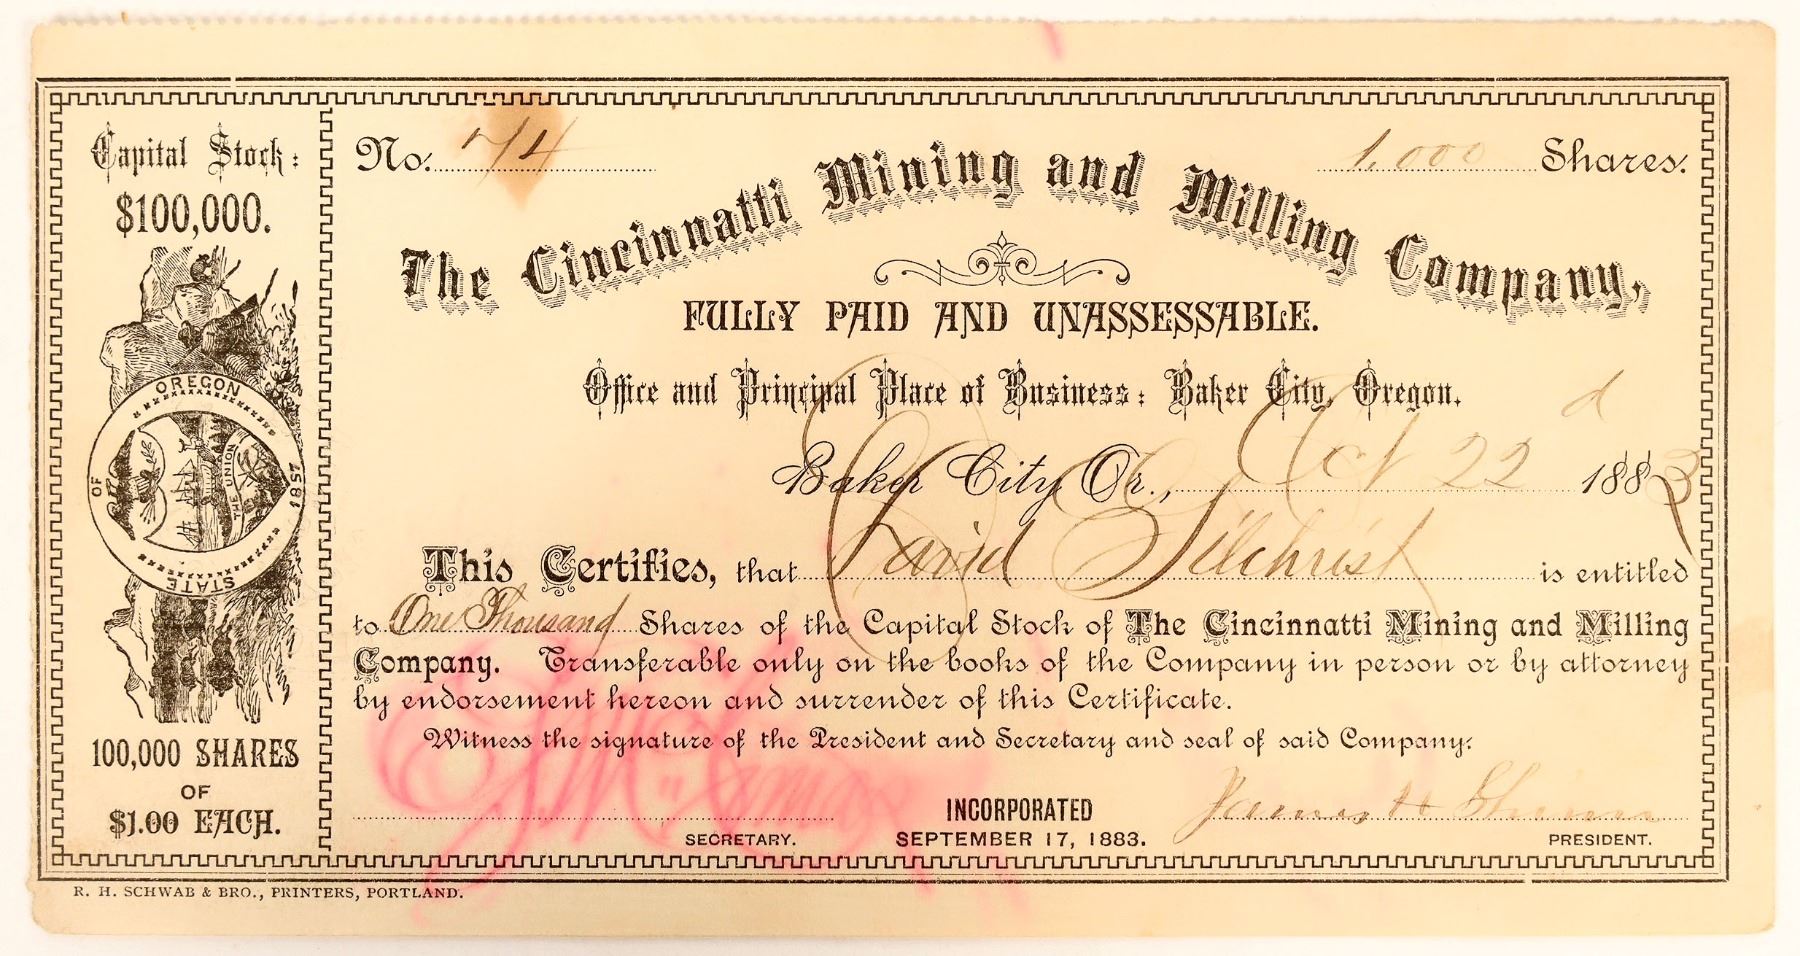 Capital Stock:
$100,000.
STATE OF OREGON 1857
THE UNION
100,000 SHARES
OF
$1.00 EACH.
No. 74
1,000 Shares.
The Cincinnatti Mining and Milling Company,
FULLY PAID AND UNASSESSABLE.
Office and Principal Place of Business: Baker City, Oregon.
Baker City, Or., Oct 22d 1883
This Certifies, that David Gilchrist is entitled
to One Thousand Shares of the Capital Stock of The Cincinnatti Mining and Milling
Company. Transferable only on the books of the Company in person or by attorney
by endorsement hereon and surrender of this Certificate.
Witness the signature of the President and Secretary and seal of said Company:
James H
SECRETARY.
INCORPORATED
SEPTEMBER 17, 1883.
PRESIDENT.
R. H. SCHWAB & BRO., PRINTERS, PORTLAND.